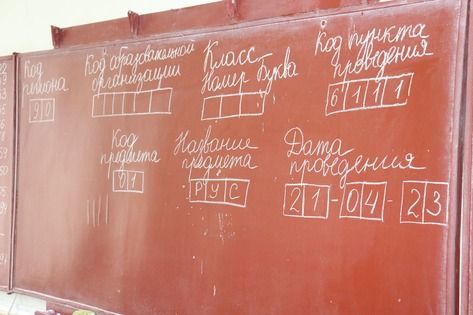 Код региона
30
Код образовательной организации
Класс
Номер Буква
Код пункта проведения
6111
Код предмета
01
Название предмета
РУС
Дата проведения
21-04-23